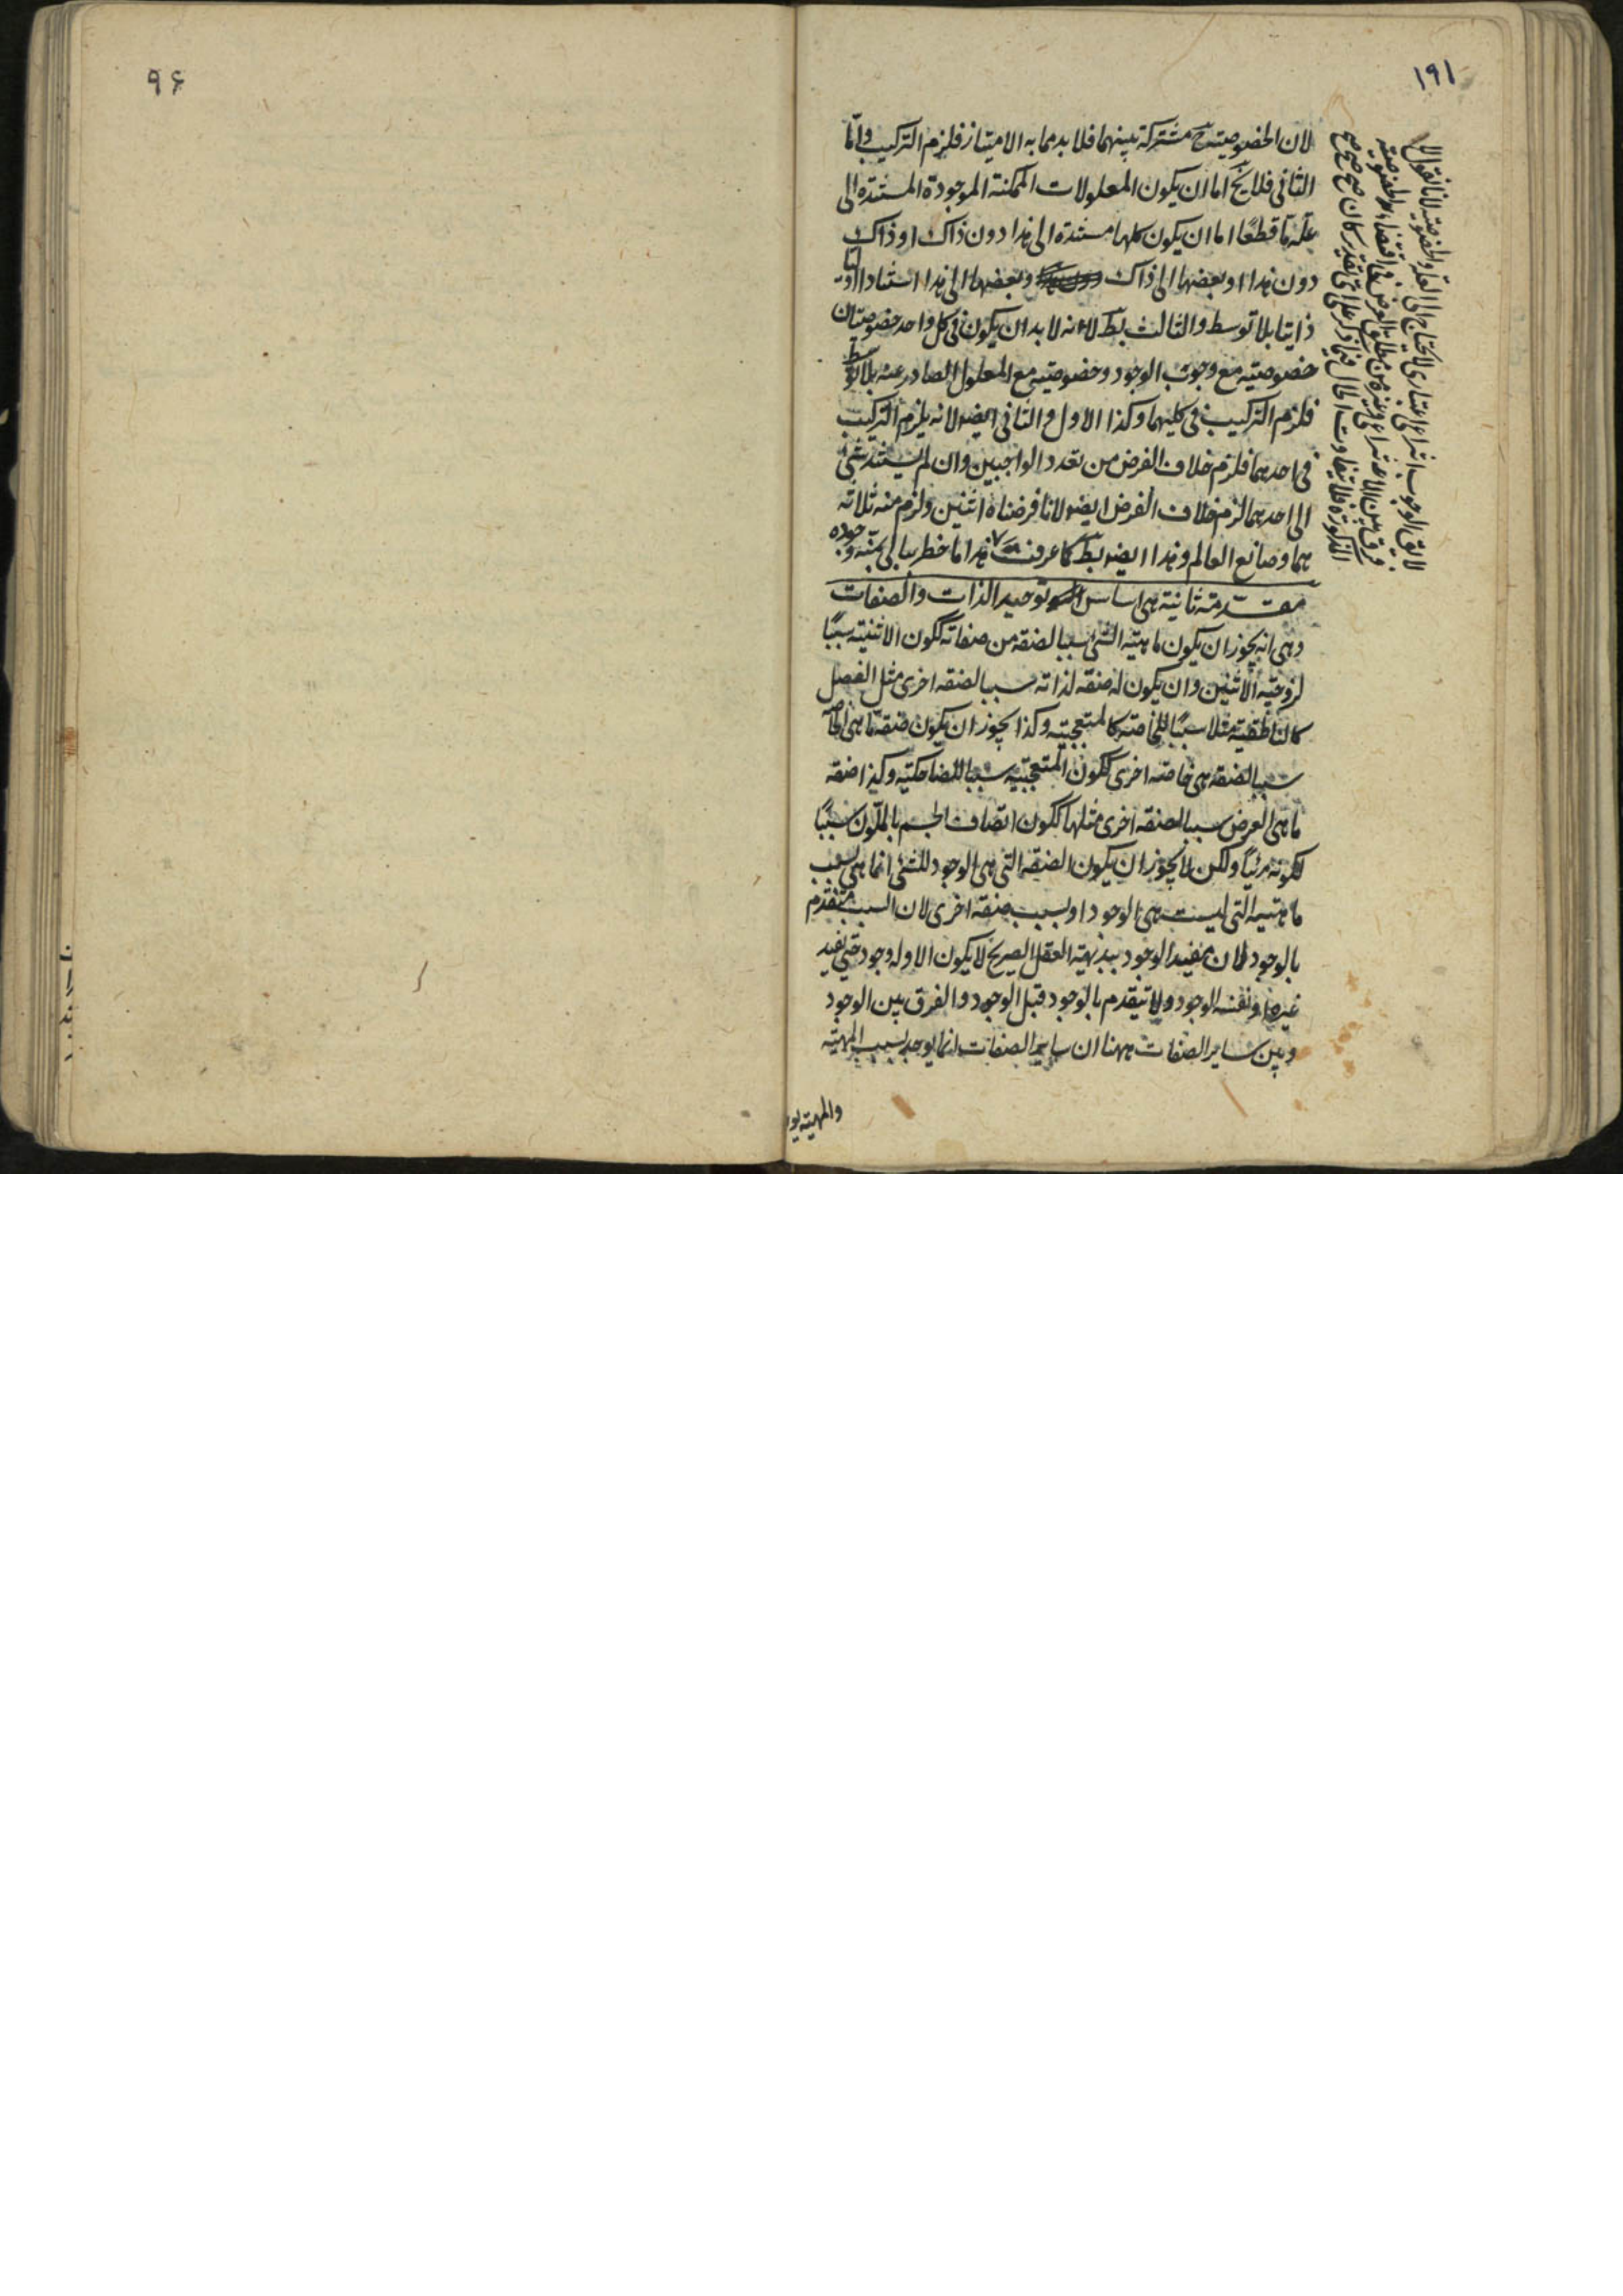 ١٩١
لان الخصوصية ح مشتركة بينهما فلا بد مما به الامتياز فلزم التركيب واما
الثانى فلا يخ اما ان يكون المعلولات الممكنة الموجودة المستندة الى
علة ما قطعًا اما ان يكون كلها مستندة الى هذا دون ذاك او ذاك
دون هذا او بعضها الى ذاك وبعضها الى هذا استنادا اوليا
ذاتيا بلا توسط والثالث بط لانه لا بد ان يكون فى كل واحد خصوصيتان
خصوصيته مع وجوب الوجود وخصوصيته مع المعلول الصادر عنه بلا توسط
فلزم التركيب فى كليهما وكذا الاول والثانى ايضا لانه يلزم التركيب
فى احدهما فلزم خلاف الفرض من تعدد الواجبين وان لم يستند شئ
الى احدهما لزم خلاف الفرض ايضا لانا فرضناه اثنين ولزم منه ثلاثه
هما وصانع العالم وهذا ايضا بط كما عرفت هذا ما خطر ببالى بمنه وجوده
مقدمة ثانية هى اساس توحيد الذات والصفات
وهى انه يجوز ان يكون ماهية الشئ سببا لصفة من صفاته ككون الاثنينية سببًا
لزوجية الاثنين وان يكون له صفة لذاته سببا لصفة اخرى مثل الفصل
كالناطقية مثلا سببًا للخاصة كالمتعجبية وكذا يجوز ان يكون صفة ما هى الخاصة
سببا لصفة هى خاصة اخرى ككون المتعجبية سببا للضاحكية وكذا صفة
ما هى العرض سببا لصفة اخرى مثلها ككون اتصاف الجسم بالملون سببًا
لكونه مرئيًا ولكن لا يجوز ان يكون الصفة التى هى الوجود للشئ انما هى بسبب
ماهيته التى ليست هى الوجود او بسبب صفة اخرى لان السبب متقدم
بالوجود لان مفيد الوجود ببديهة العقل الصريح لا يكون الا وله وجود حتى يفيد
غيره او نفسه الوجود ولا يتقدم بالوجود قبل الوجود والفرق بين الوجود
وبين ساير الصفات ههنا ان ساير الصفات انما يوجد بسبب المهية
والمهية
لا يق الوجوب انتزاعى اعتبارى لا يحتاج الى العلة والخصوصية لانا نقول لا
فرق بين الانتزاعى وغيره من مطلق العرض فى اقتضاء الخصوصية
المذكورة فلا يتفاوت الحال فيما ذكر على اى تقدير كان صح صح صح
٩۶